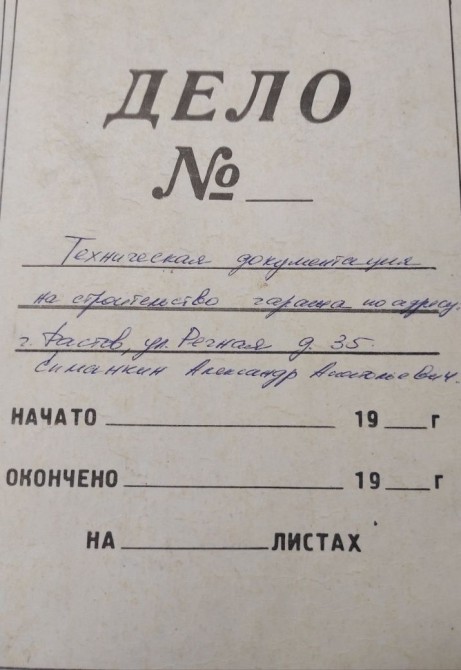 ДЕЛО
№ ___
Техническая документация
на строительство гаража по адресу:
г. Фастов, ул. Речная д. 35.
Симанкин Александр Анатольевич.
НАЧАТО ___ 19 ___ г
ОКОНЧЕНО ___ 19 ___ г
НА ___ ЛИСТАХ